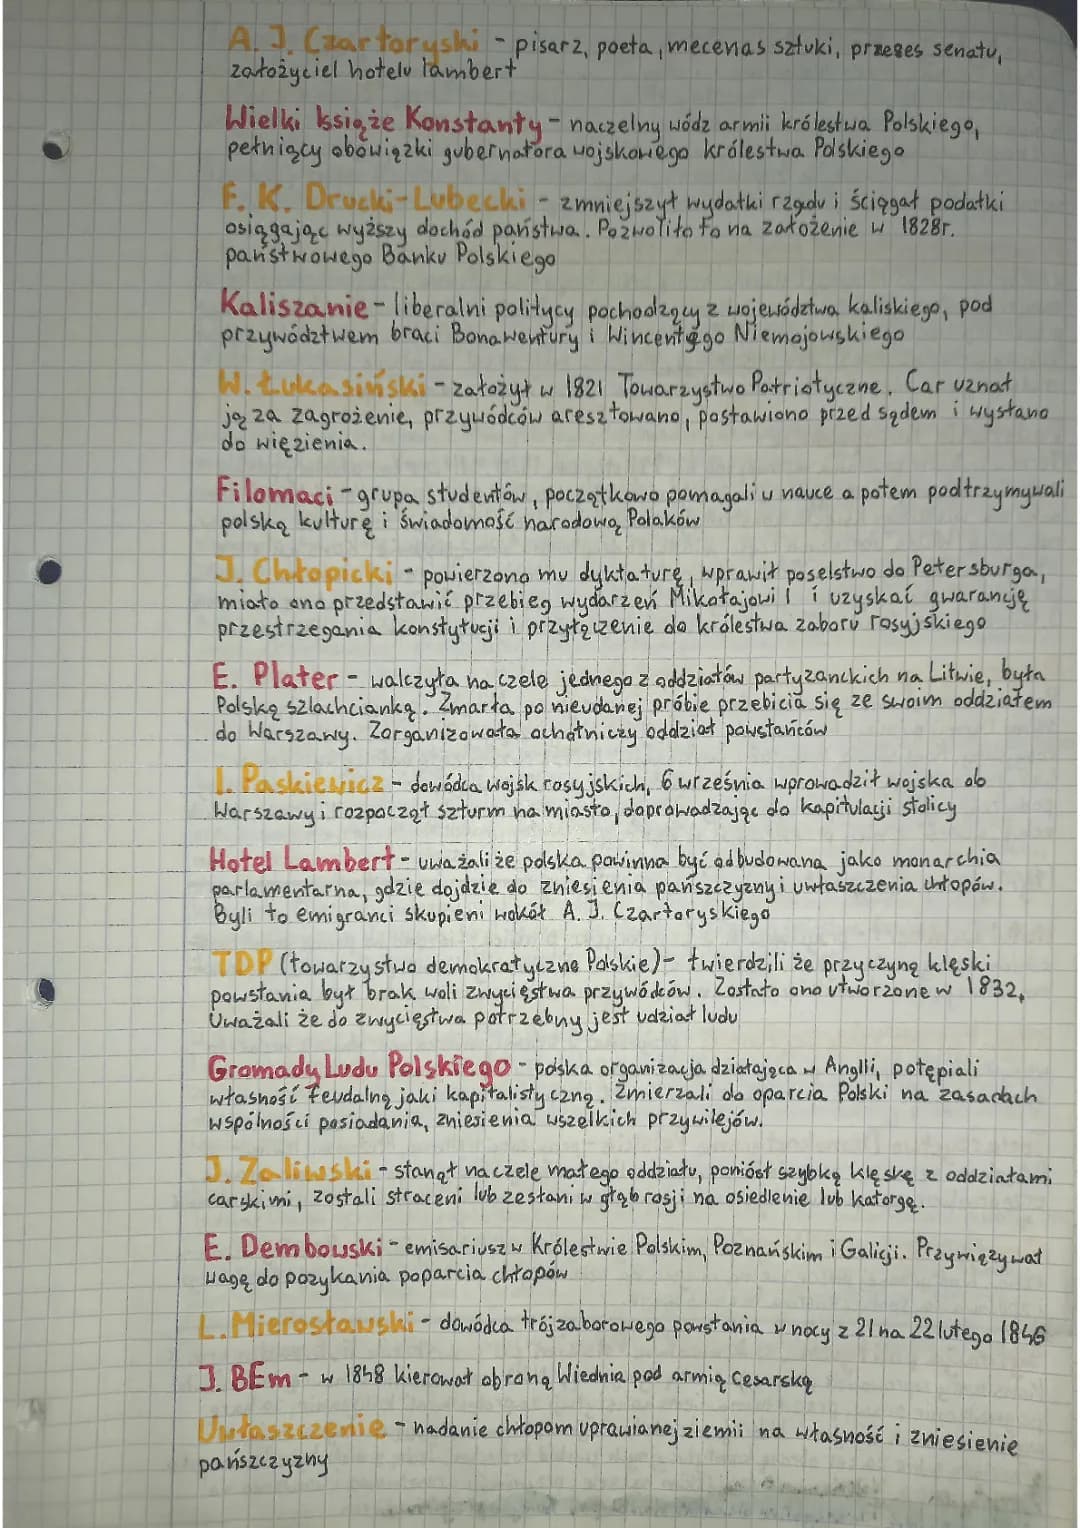 A. J. Czartoryski - pisarz, poeta, mecenas sztuki, prezes senatu,
założyciel hotelu lambert
Wielki książe Konstanty - naczelny wódz armii królestwa Polskiego,
pełniący obowiązki gubernatora wojskowego królestwa Polskiego
F. K. Drucki-Lubecki - zmniejszył wydatki rządu i ściągał podatki
osiągając wyższy dochód państwa. Pozwoliło to na założenie w 1828r.
państwowego Banku Polskiego
Kaliszanie - liberalni politycy pochodzący z województwa kaliskiego, pod
przywództwem braci Bonawentury i Wincentego Niemojowskiego
W. Łukasiński - założył w 1821 Towarzystwo Patriotyczne. Car uznał
ją za zagrożenie, przywódców aresztowano, postawiono przed sądem i wysłano
do więzienia.
Filomaci - grupa studentów, początkowo pomagali w nauce a potem podtrzymywali
polską kulturę i świadomość narodową Polaków
J. Chłopicki - powierzono mu dyktaturę, wprawił poselstwo do Petersburga,
miało ono przedstawić przebieg wydarzeń Mikołajowi I i uzyskać gwarancję
przestrzegania konstytucji i przyłączenie do królestwa zaboru rosyjskiego
E. Plater - walczyła na czele jednego z oddziałów partyzanckich na Litwie, była
Polską szlachcianką. Zmarła po nieudanej próbie przebicia się ze swoim oddziałem
do Warszawy. Zorganizowała ochotniczy oddział powstańców
I. Paskiewicz - dowódca wojsk rosyjskich, 6 września wprowadził wojska do
Warszawy i rozpoczął szturm na miasto, doprowadzając do kapitulacji stolicy
Hotel Lambert - uważali że polska powinna być odbudowana jako monarchia
parlamentarna, gdzie dojdzie do zniesienia pańszczyzny i uwłaszczenia chłopów.
Byli to emigranci skupieni wokół A. J. Czartoryskiego
TDP (towarzystwo demokratyczne Polskie) - twierdzili że przyczyną klęski
powstania był brak woli zwycięstwa przywódców. Zostało ono utworzone w 1832,
Uważali że do zwycięstwa potrzebny jest udział ludu
Gromady Ludu Polskiego - polska organizacja działająca w Anglii, potępiali
własność feudalną jaki kapitalistyczną. Zmierzali do oparcia Polski na zasadach
wspólności posiadania, zniesienia wszelkich przywilejów.
J. Zaliwski - stanął na czele małego oddziału, poniósł szybką klęskę z oddziałami
carskimi, zostali straceni lub zesłani w głąb rosji na osiedlenie lub katorgę.
E. Dembowski - emisariusz w Królestwie Polskim, Poznańskim i Galicji. Przywiązywał
wagę do pozykania poparcia chłopów
L. Mierosławski - dowódca trójzaborowego powstania w nocy z 21 na 22 lutego 1846
J. BEm - w 1848 kierował obroną Wiednia pod armią cesarską
Uwłaszczenie - nadanie chłopom uprawianej ziemii na własność i zniesienie
pańszczyzny